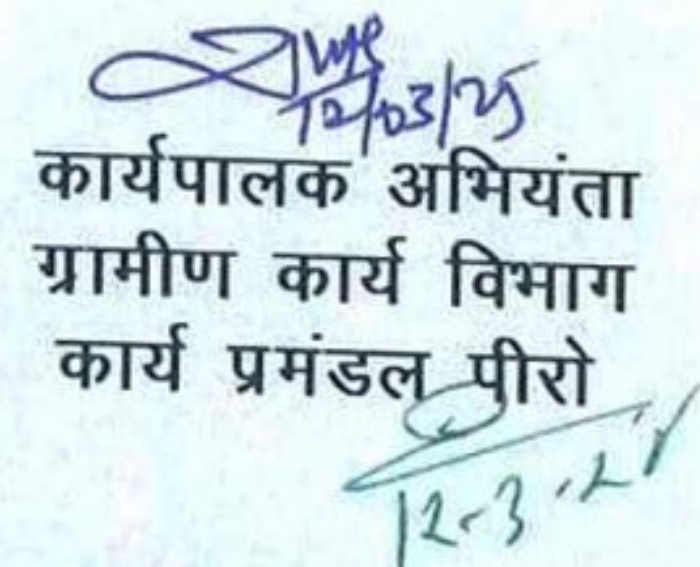 12/03/25
कार्यपालक अभियंता
ग्रामीण कार्य विभाग
कार्य प्रमंडल पीरो
12-3-25